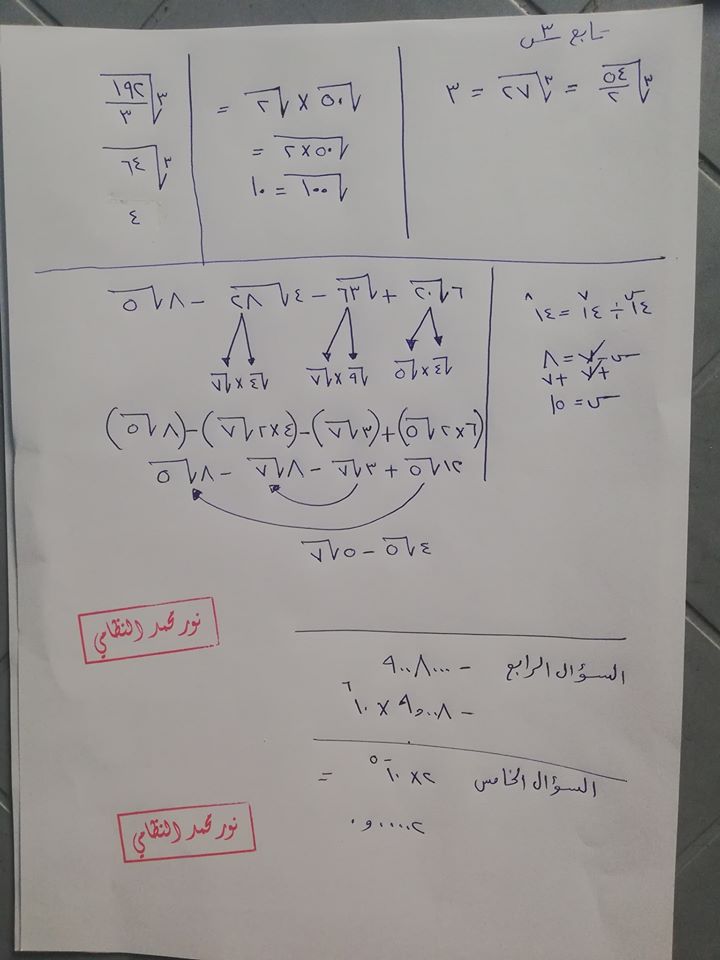 تابع س٣
∛(٥٤/٢) = ∛٢٧ = ٣
√٥٠ × √٢ =
√(٥٠×٢) =
√١٠٠ = ١٠
∛(١٩٢/٣)
∛٦٤
٤
١٤^س ÷ ١٤^٧ = ١٤^٨
س - ٧ = ٨
+٧ +٧
س = ١٥
٦√٢٠ + √٦٣ - ٤√٢٨ - ٨√٥
√٤×√٥ √٩×√٧ √٤×√٧
(٦×٢√٥) + (٣√٧) - (٤×٢√٧) - (٨√٥)
١٢√٥ + ٣√٧ - ٨√٧ - ٨√٥
٤√٥ - ٥√٧
نور محمد النظامي
السؤال الرابع - ٩٠٠٨٠٠٠
- ٩,٠٠٨ × ١٠^٦
السؤال الخامس ٢×١٠^-٥ =
٠,٠٠٠٠٢
نور محمد النظامي